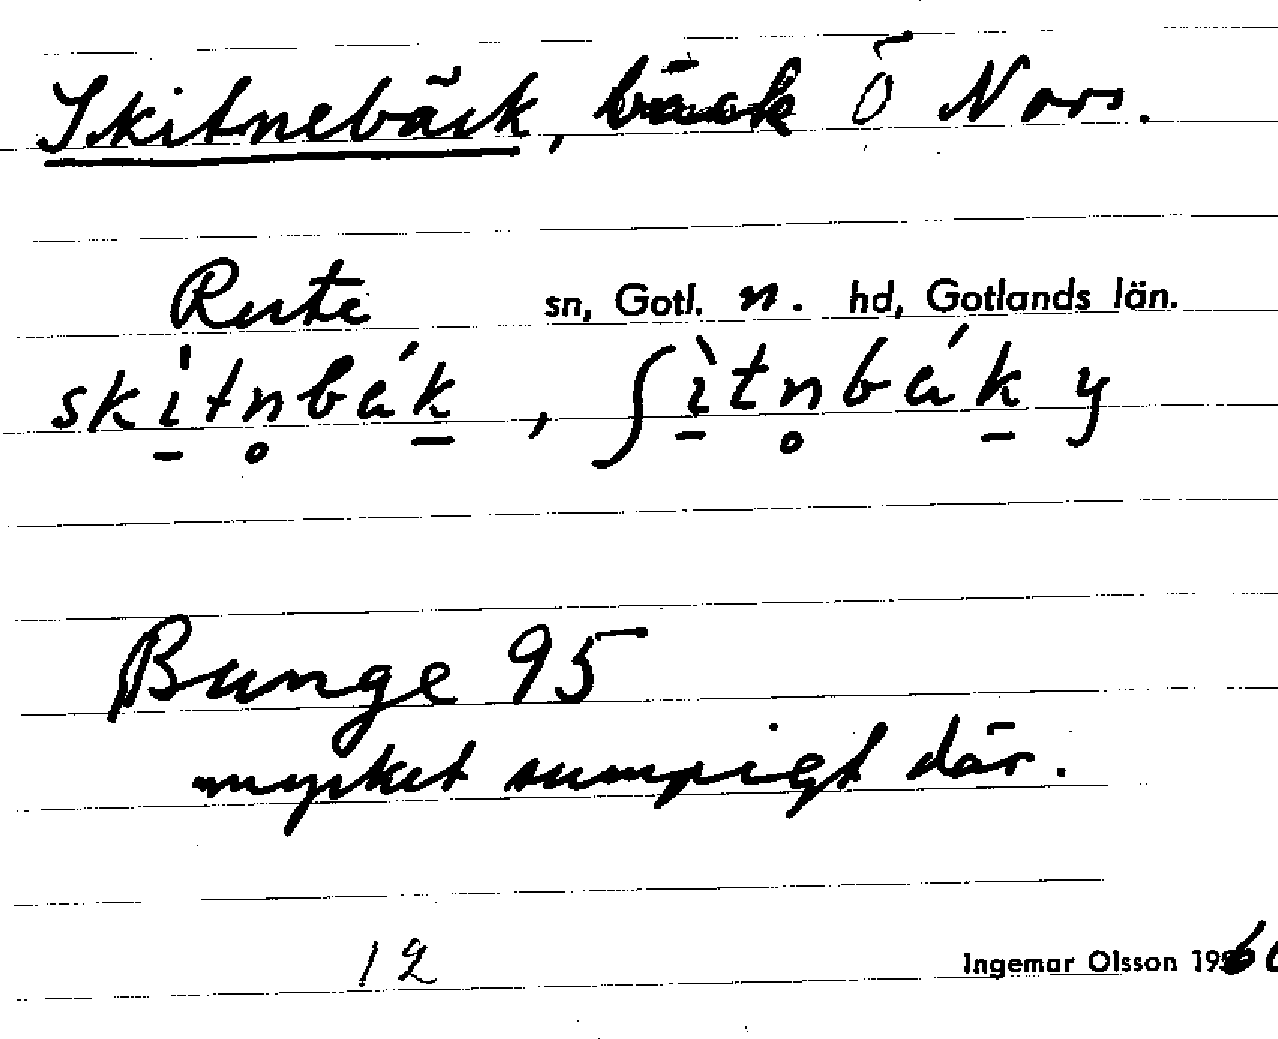 Skitnebäck, bäck Ö Nors.
Rute sn, Gotl. n. hd, Gotlands län.
skì̱tn̥báḵ, ʃì̱tn̥báḵ y
Bunge 95
mycket sumpigt där.
12 Ingemar Olsson 1960